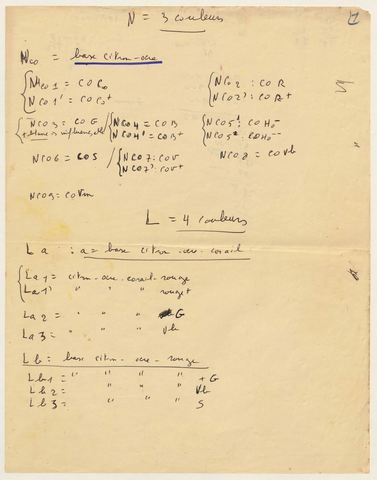 N = 3 couleurs
Nco = base citron-ocre
NCO1 = COC NCO2 : COR
NCO1' = COC+ NCO2' : COR+
NCO3 = COG NCO4 = COB NCO5
NCO4' = COB+ NCO5
NCO6 = COS NCO7 : COV NCO8 = COVb
NCO7' : COV+
NCO9 = COVm
L = 4 couleurs
La : a = base citron-ocre-corail
La1 = citron-ocre-corail-rouge
La1' " " " rouge+
La2 = " " " G
La3 = " " " Vb
Lb = base citron-ocre-rouge
Lb1 = " " " " + G
Lb2 = " " " Vb
Lb3 = " " " S